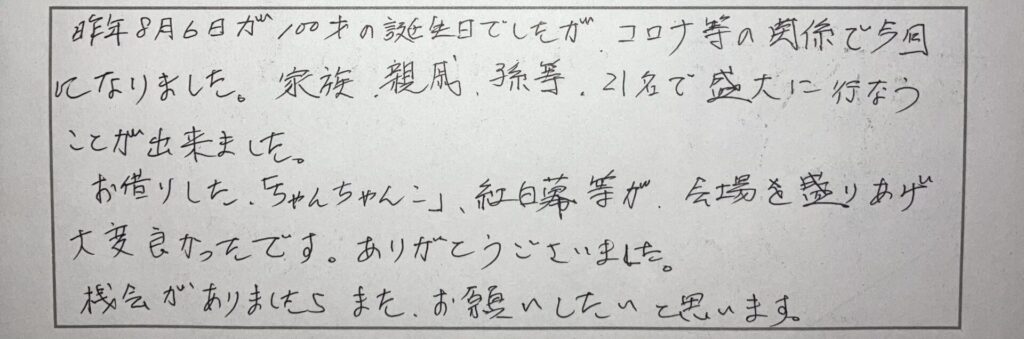 昨年8月6日が100才の誕生日でしたが、コロナ等の関係で今回
になりました。家族、親戚、孫等、21名で盛大に行なう
ことが出来ました。
お借りした、「ちゃんちゃんこ」、紅白幕等が、会場を盛りあげ
大変良かったです。ありがとうございました。
機会がありましたら また、お願いしたいと思います。